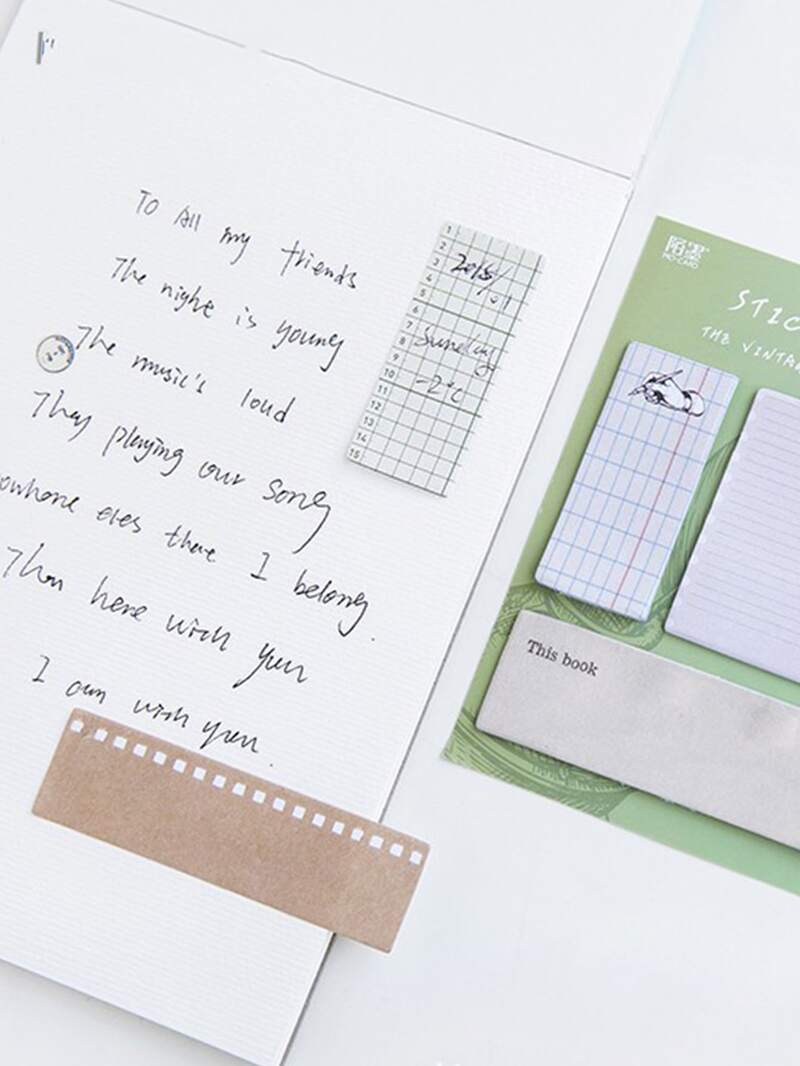 To All my friends
The night is young
The music's loud
They playing our song
owhere eles there I belong.
Than here with you
I am with you.
1
2
3
4
5
6
7
8
9
10
11
12
13
14
15
2015/
Sunday
-2°C
陌墨
MO·CARD
STIC
THE VINTA
This book